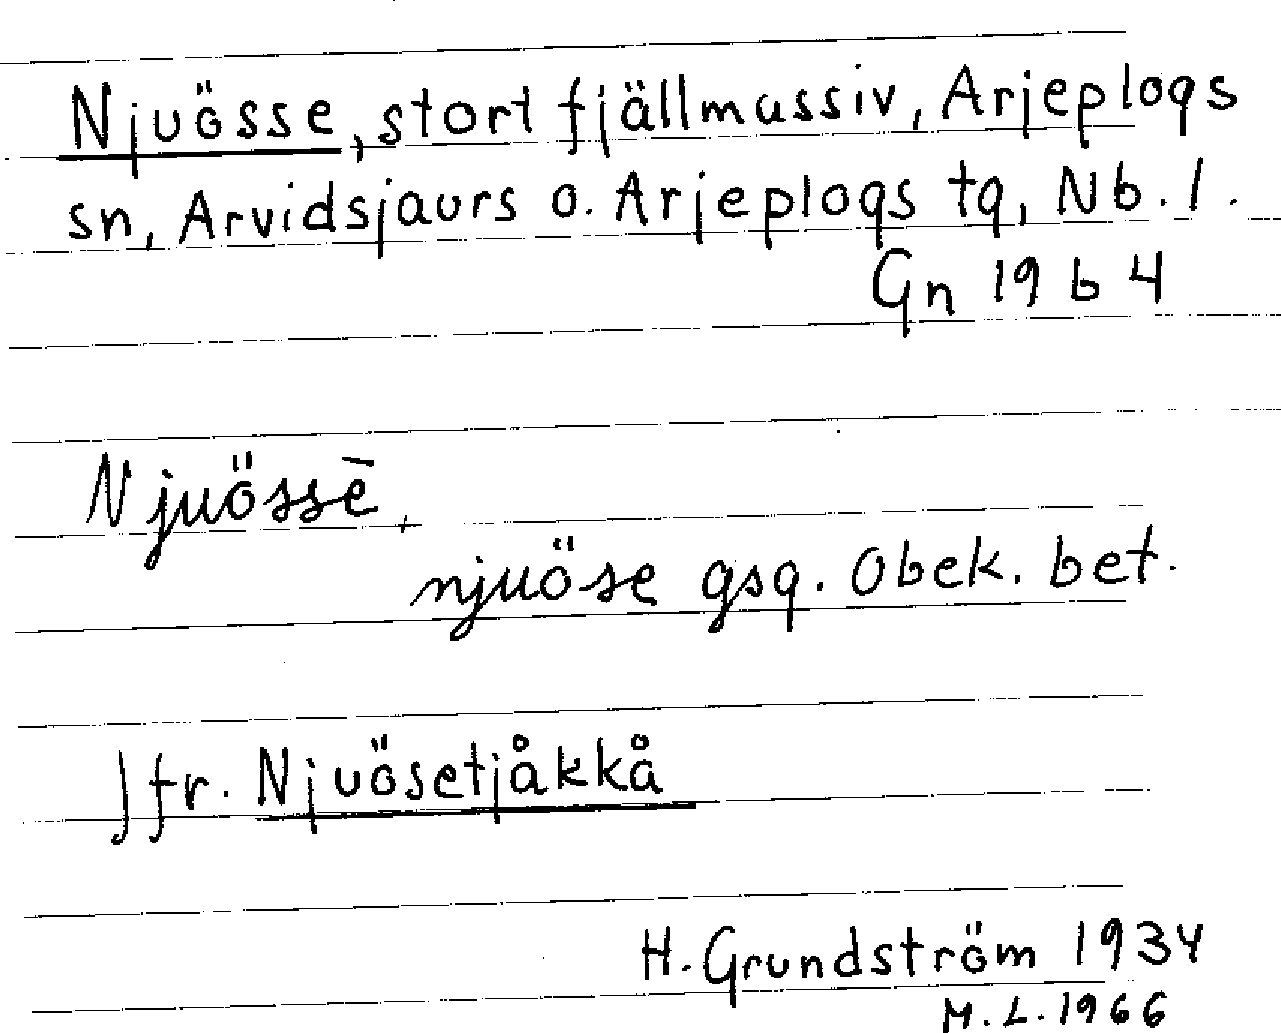 Njuösse, stort fjällmassiv, Arjeplogs
sn, Arvidsjaurs o. Arjeplogs tg, Nb. l.
Gn 1964
Njuössḕ,
njuöse gsg. Obek. bet.
Jfr. Njuösetjåkkå
H. Grundström 1934
M.L. 1966